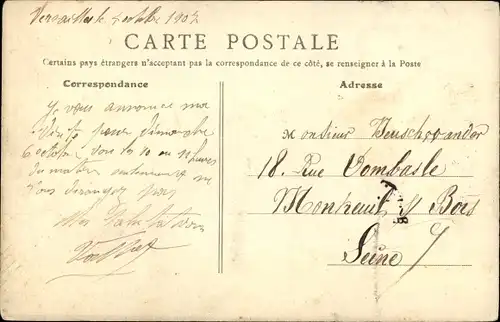 Versailles le 4 octobre 1907
CARTE POSTALE
Certains pays étrangers n'acceptant pas la correspondance de ce côté, se renseigner à la Poste
Correspondance
Adresse
Je vous annonce ma
visite pour dimanche
6 octobre vers les 10 ou 11 heures
du matin
vous dérangez pas
Mes Salutations
Monsieur
18. Rue Dombasle
Montreuil s/ Bois
Seine